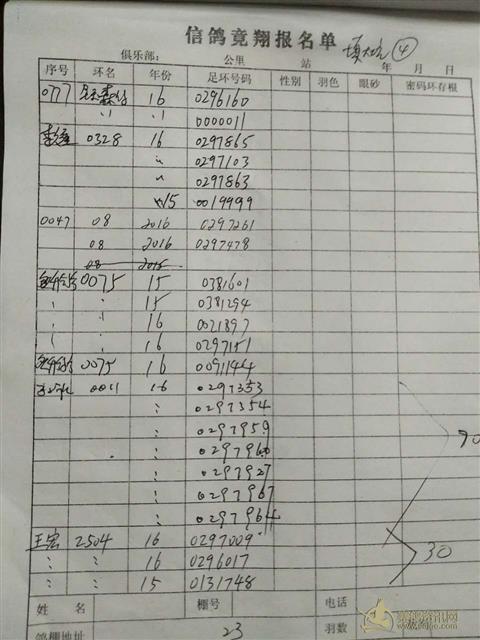 信鸽竞翔报名单 ④
俱乐部： 公里 站 年 月 日
序号 环名 年份 足环号码 性别 羽色 眼砂 密码环存根
0777 16 0296160
〃 〃 0000011
0328 16 0297865
〃 0297103
〃 0297863
15 0019999
0047 08 2016 0297261
08 2016 0297478
08 2015
0075 15 0381601
15 0381294
16 0021897
16 0297151
0075 16 0091144
0011 16 0297353
0297354
0297959
0297960
0297927
0297967
0297964
王宏 2504 16 0297009
〃 〃 16 0296017 30
〃 〃 15 0131748
姓 名 棚号 电话
鸽棚地址 23 羽数